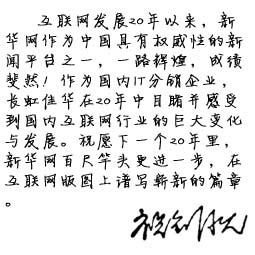 互联网发展20年以来，新
华网作为中国具有权威性的新
闻平台之一，一路辉煌，成绩
斐然！作为国内IT分销企业，
长虹佳华在20年中目睹并感受
到国内互联网行业的巨大变化
与发展。祝愿下一个20年里，
新华网百尺竿头更进一步，在
互联网版图上谱写崭新的篇章
。